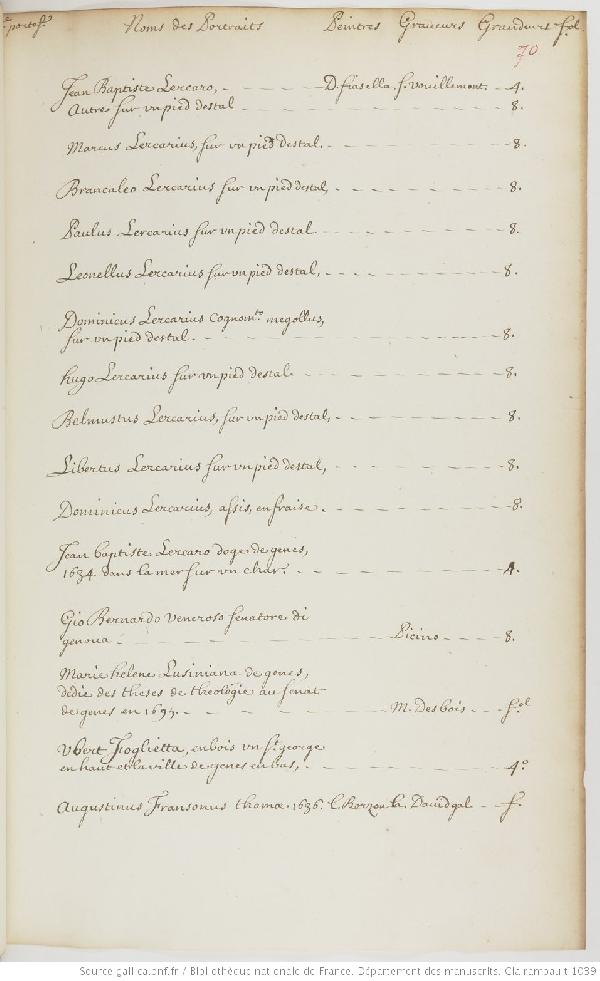 portef. Noms des Portraits Peintres Graveurs Grandeurs fol
70
Jean Baptiste Lercaro, D. fiasella. f. vouillemont. 4.
Autre sur vn pied destal 8.
Marcus Lercarius, sur vn pied destal. 8.
Brancaleo Lercarius sur vn pied destal, 8.
Paulus Lercarius sur vn pied destal 8.
Leonellus Lercarius sur vn pied destal, 8.
Dominicus Lercarius Cognomto megollus,
sur vn pied destal. 8.
hugo Lercarius sur vn pied destal 8.
Belmustus Lercarius, sur vn pied destal, 8.
Libertus Lercarius sur vn pied destal, 8.
Dominicus Lercarius, assis, en fraise. 8.
Jean baptiste Lercaro doge de genes,
1634. dans la mer sur vn char. 4.
Gio Bernardo Veneroso senatore di
genoua Picino 8.
Marie helene Lusiniana de genes,
dedie des theses de theologie au senat
de genes en 1695. M. Desbois fol
Vbert Foglietta, en bois vn St. george
en haut et la ville de genes en bas, 4°
Augustinus Fransonus thomæ. 1636. L. Dauid gal f.
Source gallica.bnf.fr / Bibliothèque nationale de France. Département des manuscrits. Clairambault 1039